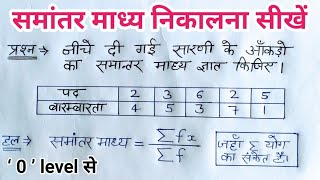 समांतर माध्य निकालना सीखें
प्रश्न → नीचे दी गई सारणी के आँकड़ो
का समान्तर माध्य ज्ञात किजिए।
पद 2 3 6 2 5
बारम्बारता 4 5 3 7 1
हल → समांतर माध्य = Σfx / Σf
जहाँ Σ योग
का संकेत है।
‘ 0 ’ level से